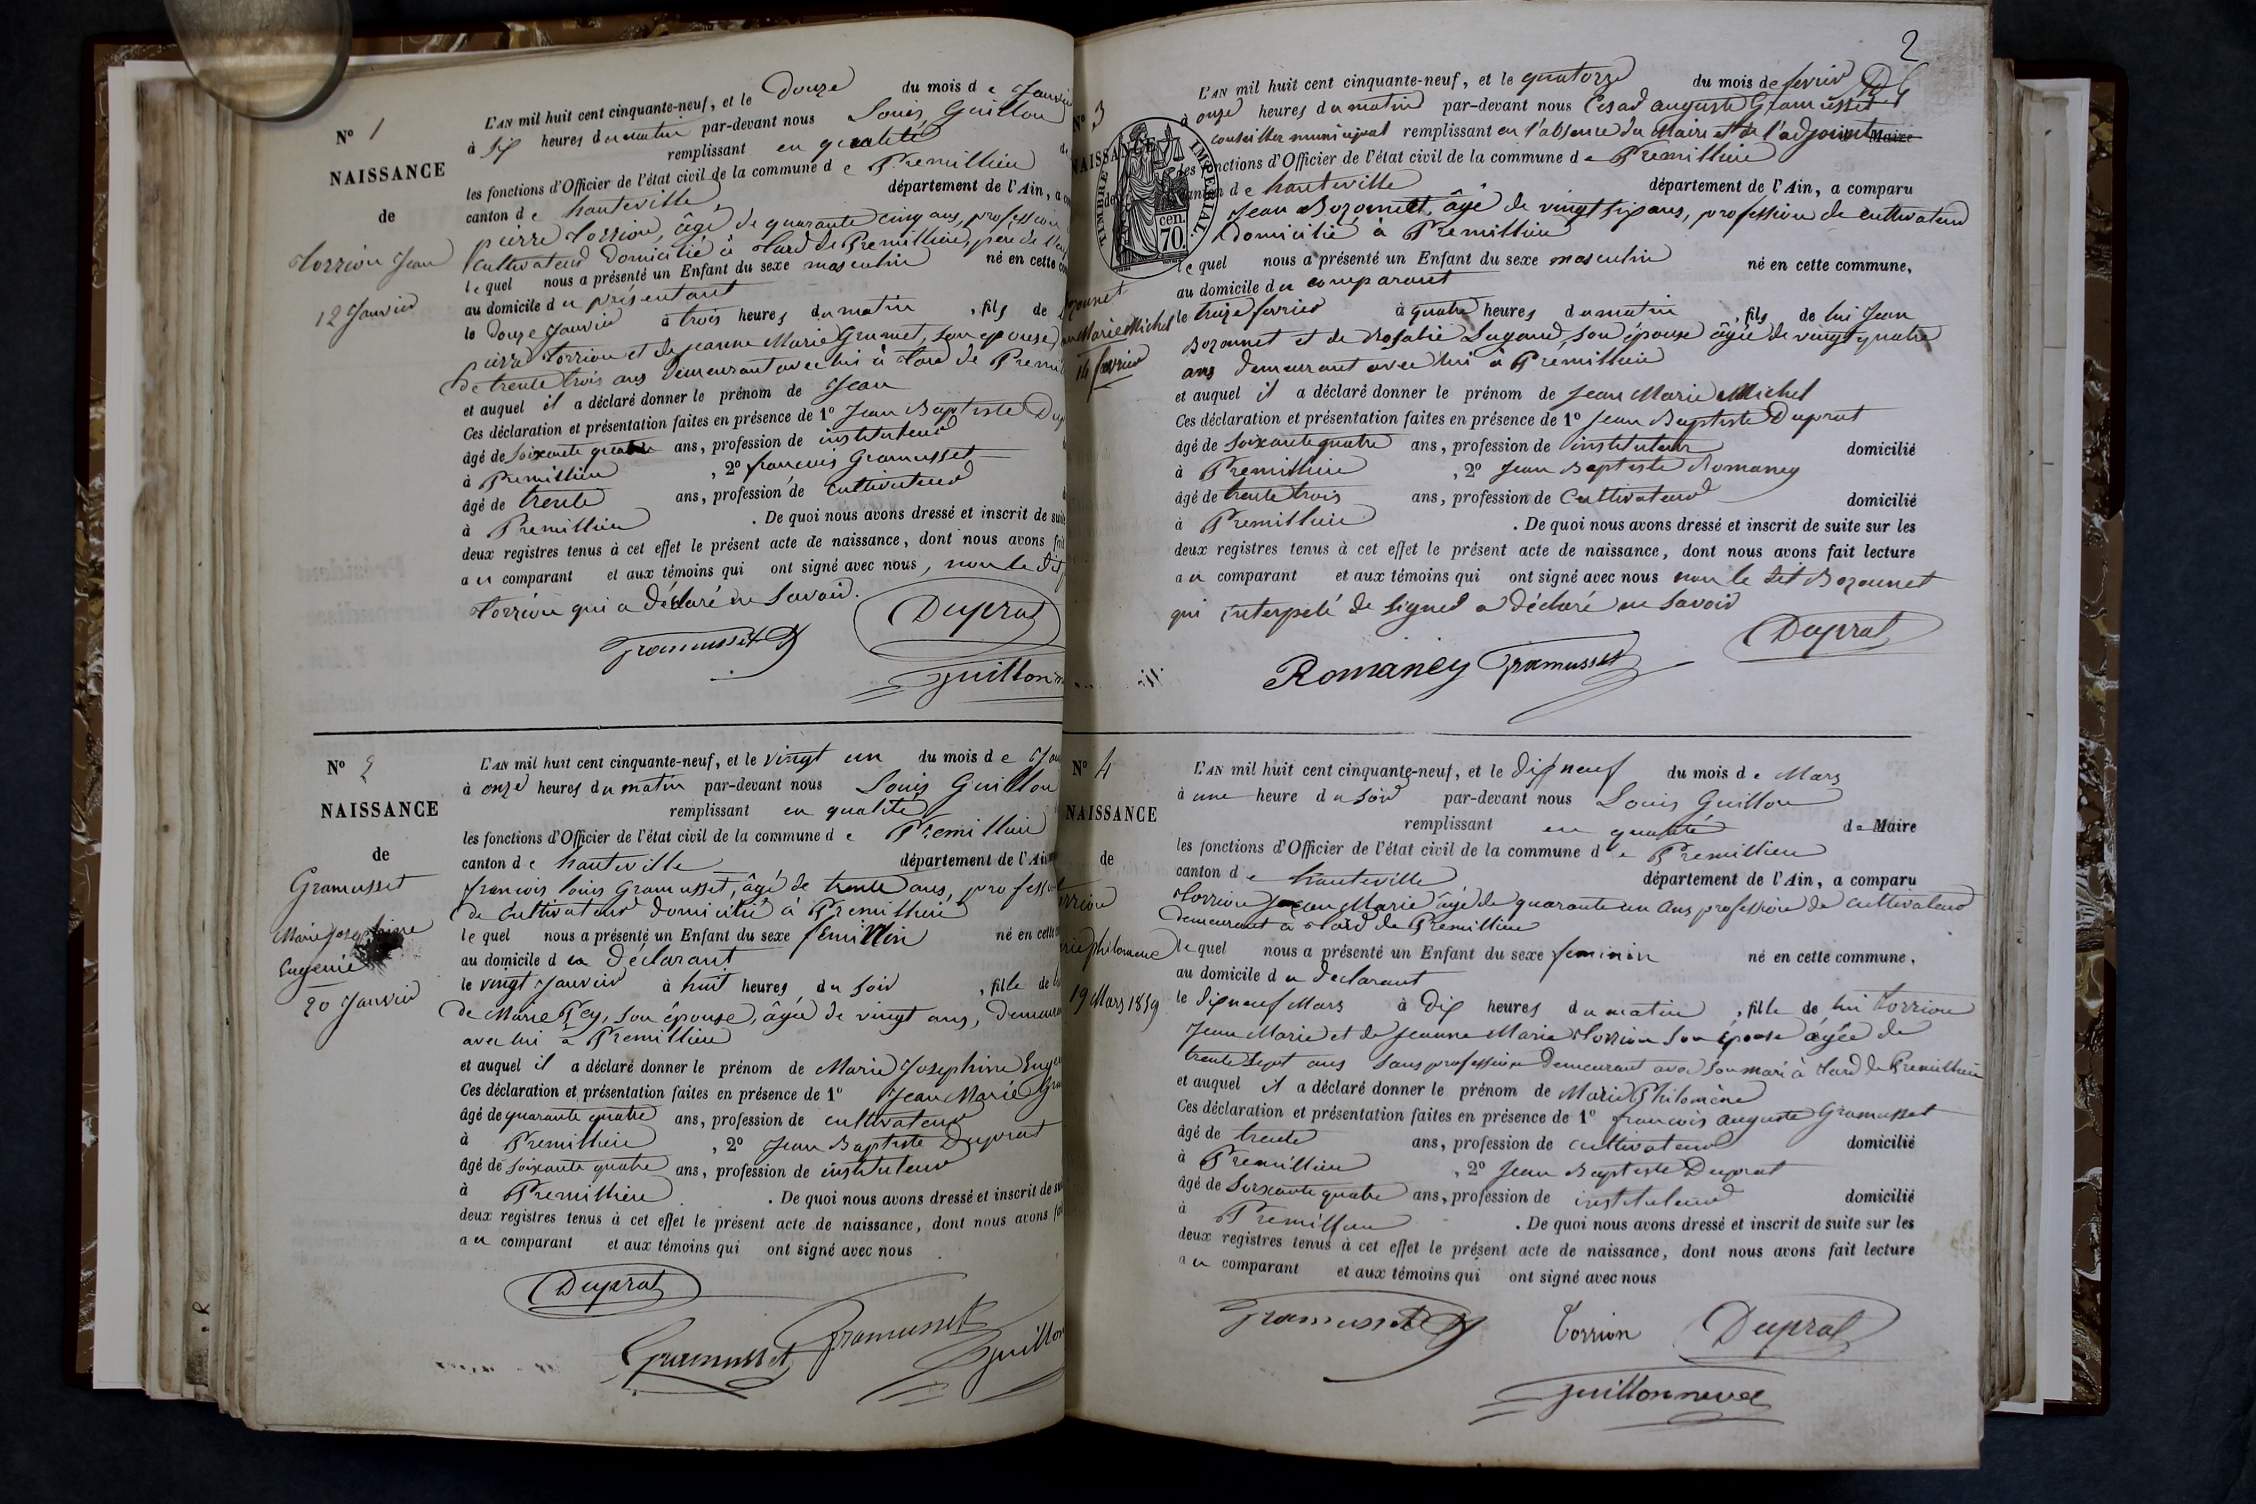 N° 1
NAISSANCE
de
Torrion Jean
12 Janvier
L'AN mil huit cent cinquante-neuf, et le Douze du mois de Janvier
à six heures du matin par-devant nous Louis Guillon
remplissant en qualité
les fonctions d'Officier de l'état civil de la commune de Premillieu
canton de hauteville département de l'Ain, a
pierre Torrion, âgé de quarante cinq ans, profession
Cultivateur domicilié à Tard de Premillieu, père de l'en
lequel nous a présenté un Enfant du sexe masculin né en cette
au domicile du présentant
le Douze Janvier à trois heures du matin, fils de
pierre Torrion et de jeanne Marie Grumet, son épouse,
de trente trois ans demeurant avec lui à Tard de Premil
et auquel il a déclaré donner le prénom de Jean
Ces déclaration et présentation faites en présence de 1° Jean Baptiste Dup
âgé de Soixante quatre ans, profession de instituteur
à Premillieu, 2° françois Gramusset
âgé de trente ans, profession de cultivateur
à Premillieu. De quoi nous avons dressé et inscrit de suite
deux registres tenus à cet effet le présent acte de naissance, dont nous avons fait
au comparant et aux témoins qui ont signé avec nous, non le dit
Torrion qui a déclaré ne Savoir.
Duprat
Gramusset
Guillon
N° 2
NAISSANCE
de
Gramusset
Marie Josephine
Eugenie
20 Janvier
L'AN mil huit cent cinquante-neuf, et le vingt un du mois de
à onze heures du matin par-devant nous Louis Guillon
remplissant en qualité
les fonctions d'Officier de l'état civil de la commune de Premillieu
canton de hauteville département de l'Ain
françois louis Gramusset, âgé de trente ans, profession
de Cultivateur domicilié à Premillieu
lequel nous a présenté un Enfant du sexe féminin né en cette
au domicile du déclarant
le vingt Janvier à huit heures du soir, fille de lui
de Marie Pey, son épouse, âgée de vingt ans, demeurant
avec lui à Premillieu
et auquel il a déclaré donner le prénom de Marie Josephine Euge
Ces déclaration et présentation faites en présence de 1° Jean Marie Gra
âgé de quarante quatre ans, profession de cultivateur
à Premillieu, 2° Jean Baptiste Duprat
âgé de Soixante quatre ans, profession de instituteur
à Premillieu. De quoi nous avons dressé et inscrit de
deux registres tenus à cet effet le présent acte de naissance, dont nous avons
au comparant et aux témoins qui ont signé avec nous
Duprat
Gramusset
Gramusset
Guillon
2
N° 3
NAISSANCE
de
TIMBRE IMPERIAL
70 cen.
Marie Michel
14 fevrier
L'AN mil huit cent cinquante-neuf, et le quatorze du mois de fevrier
à onze heures du matin par-devant nous Cesar auguste Gramusset
conseiller municipal remplissant en l'absence du Maire et de l'adjoint Maire
les fonctions d'Officier de l'état civil de la commune de Premillieu
canton de hauteville département de l'Ain, a comparu
Jean Bozonnet, âgé de vingt six ans, profession de cultivateur
domicilié à Premillieu
lequel nous a présenté un Enfant du sexe masculin né en cette commune,
au domicile du comparant
le treize fevrier à quatre heures du matin, fils de lui Jean
Bozonnet et de Rosalie Lugand, son épouse âgée de vingt quatre
ans demeurant avec lui à Premillieu
et auquel il a déclaré donner le prénom de Jean Marie Michel
Ces déclaration et présentation faites en présence de 1° Jean Baptiste Duprat
âgé de Soixante quatre ans, profession de instituteur domicilié
à Premillieu, 2° Jean Baptiste Romaney
âgé de trente trois ans, profession de Cultivateur domicilié
à Premillieu. De quoi nous avons dressé et inscrit de suite sur les
deux registres tenus à cet effet le présent acte de naissance, dont nous avons fait lecture
au comparant et aux témoins qui ont signé avec nous non le dit Bozonnet
qui interpelé de signer a déclaré ne Savoir
Duprat
Romaney Gramusset
N° 4
NAISSANCE
de
philomene
19 Mars 1859
L'AN mil huit cent cinquante-neuf, et le dix neuf du mois de Mars
à une heure du soir par-devant nous Louis Guillon
remplissant en qualité de Maire
les fonctions d'Officier de l'état civil de la commune de Premillieu
canton de hauteville département de l'Ain, a comparu
Torrion Jean Marie âgé de quarante un ans profession de cultivateur
demeurant à Tard de Premillieu
lequel nous a présenté un Enfant du sexe feminin né en cette commune,
au domicile du declarant
le dix neuf Mars à dix heures du matin, fille de lui Torrion
Jean Marie et de Jeanne Marie Torrion son épouse âgée de
trente sept ans sans profession demeurant avec son mari à Tard de Premillieu
et auquel il a déclaré donner le prénom de Marie Philomène
Ces déclaration et présentation faites en présence de 1° françois auguste Gramusset
âgé de trente ans, profession de cultivateur domicilié
à Premillieu, 2° Jean Baptiste Duprat
âgé de Soixante quatre ans, profession de instituteur domicilié
à Premillieu. De quoi nous avons dressé et inscrit de suite sur les
deux registres tenus à cet effet le présent acte de naissance, dont nous avons fait lecture
au comparant et aux témoins qui ont signé avec nous
Gramusset Torrion Duprat
Guillon